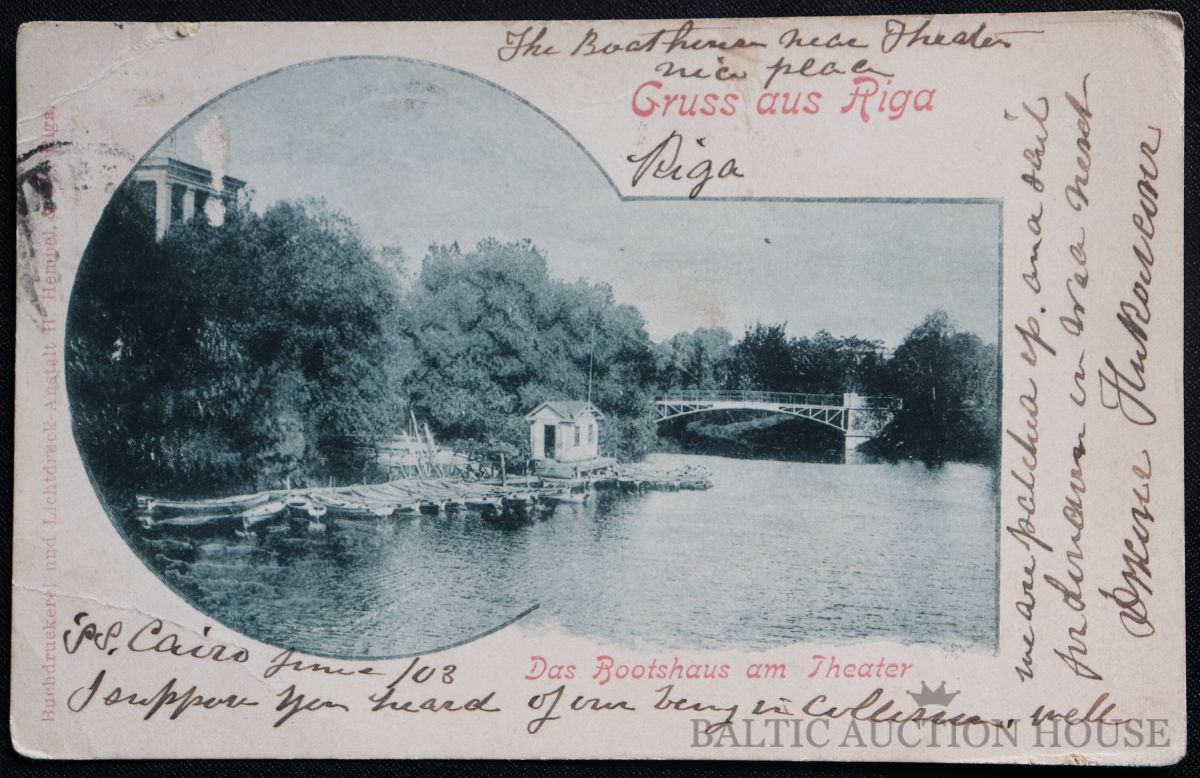 The Boathouse near Theater
nice place
Gruss aus Riga
Riga
Buchdruckerei und Lichtdruck-Anstalt H. Hempel, Riga.
SS. Cairo June /03
Das Bootshaus am Theater
I suppose you heard of our being in Collision. well
were patched up. and sail
for London in
next
BALTIC AUCTION HOUSE